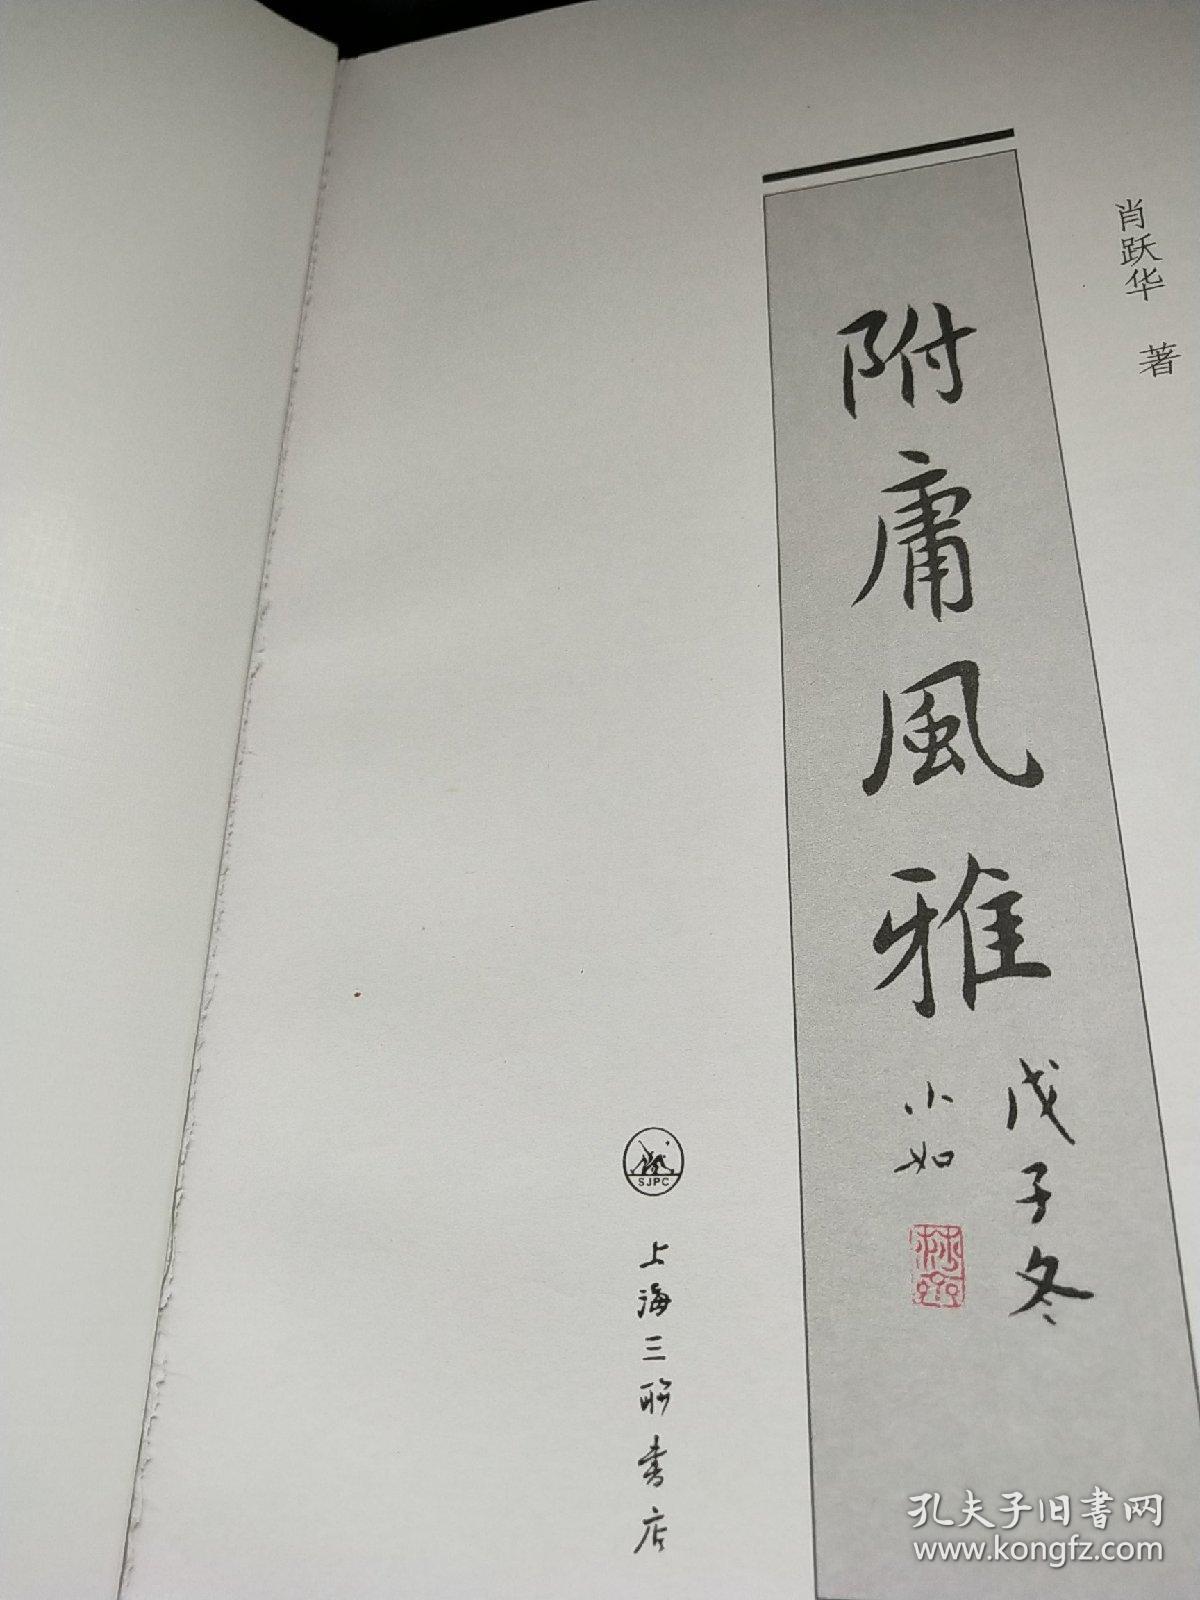 肖跃华 著
附庸風雅
戊子冬
小如
SJPC
上海三联书店
孔夫子旧书网
www.kongfz.com